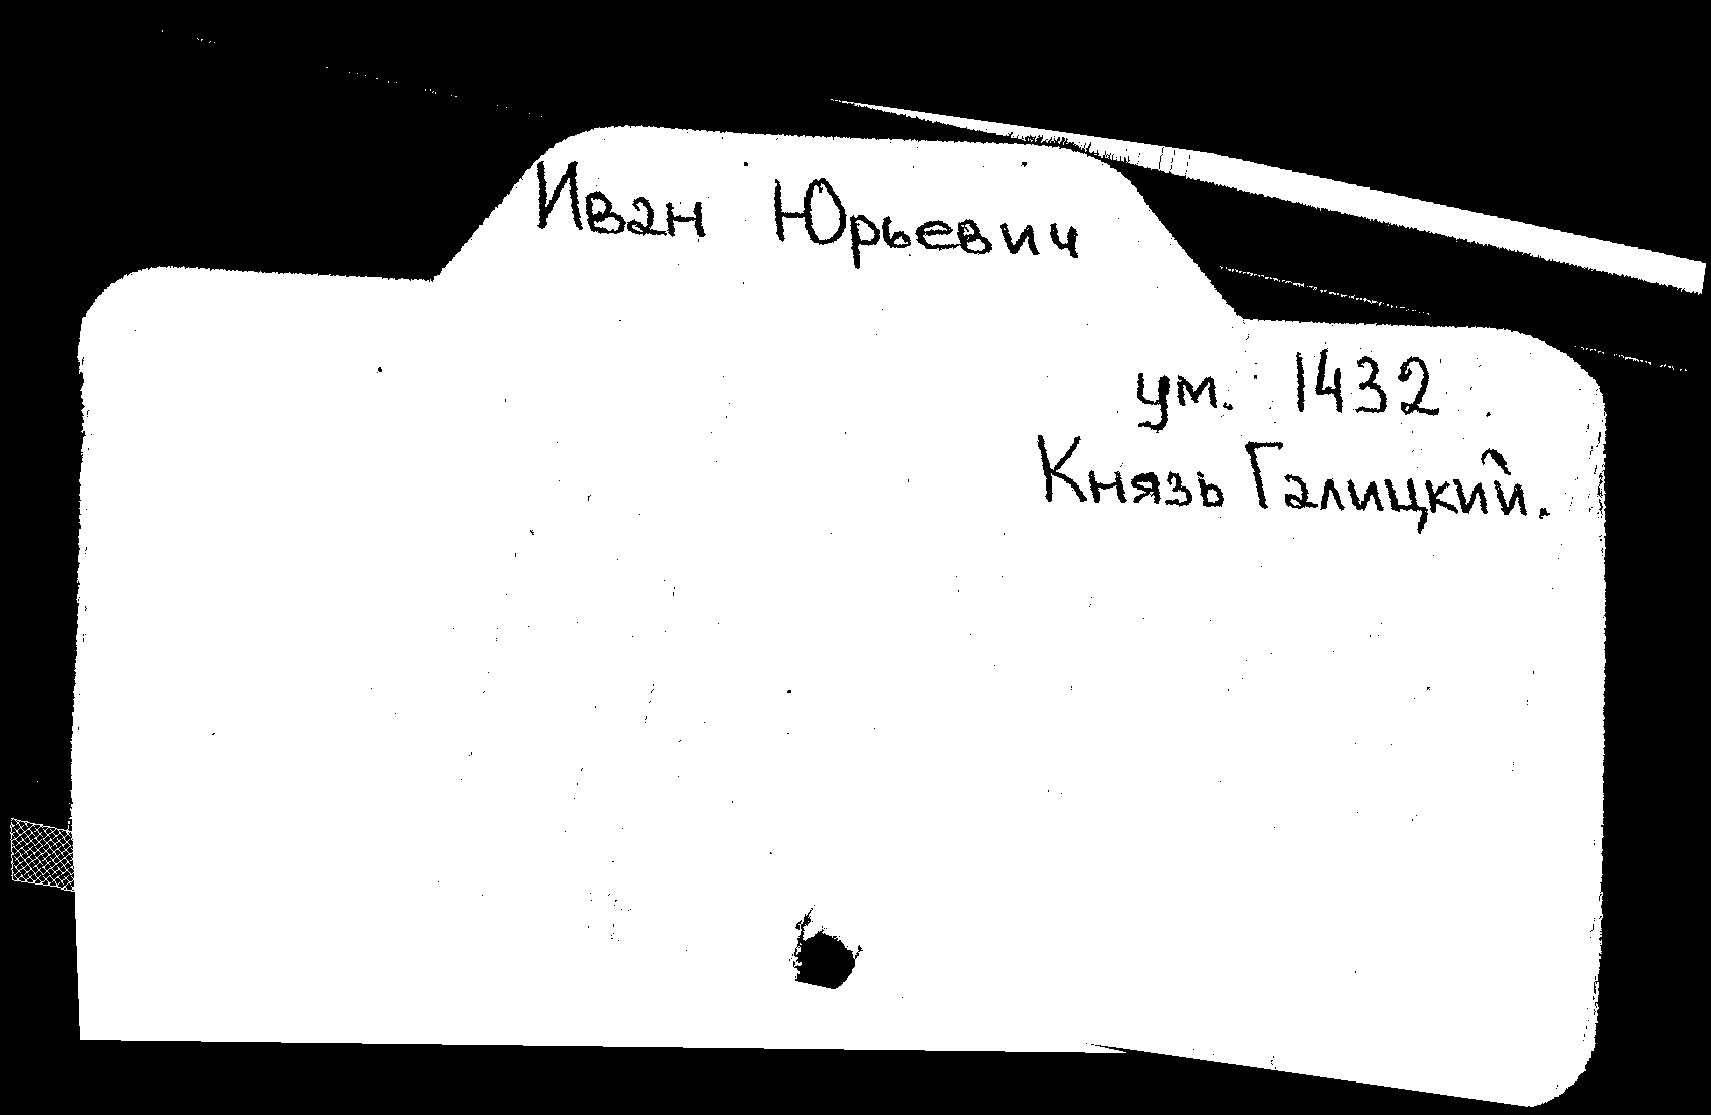 Иван Юрьевич
ум. 1432
Князь Галицкий.